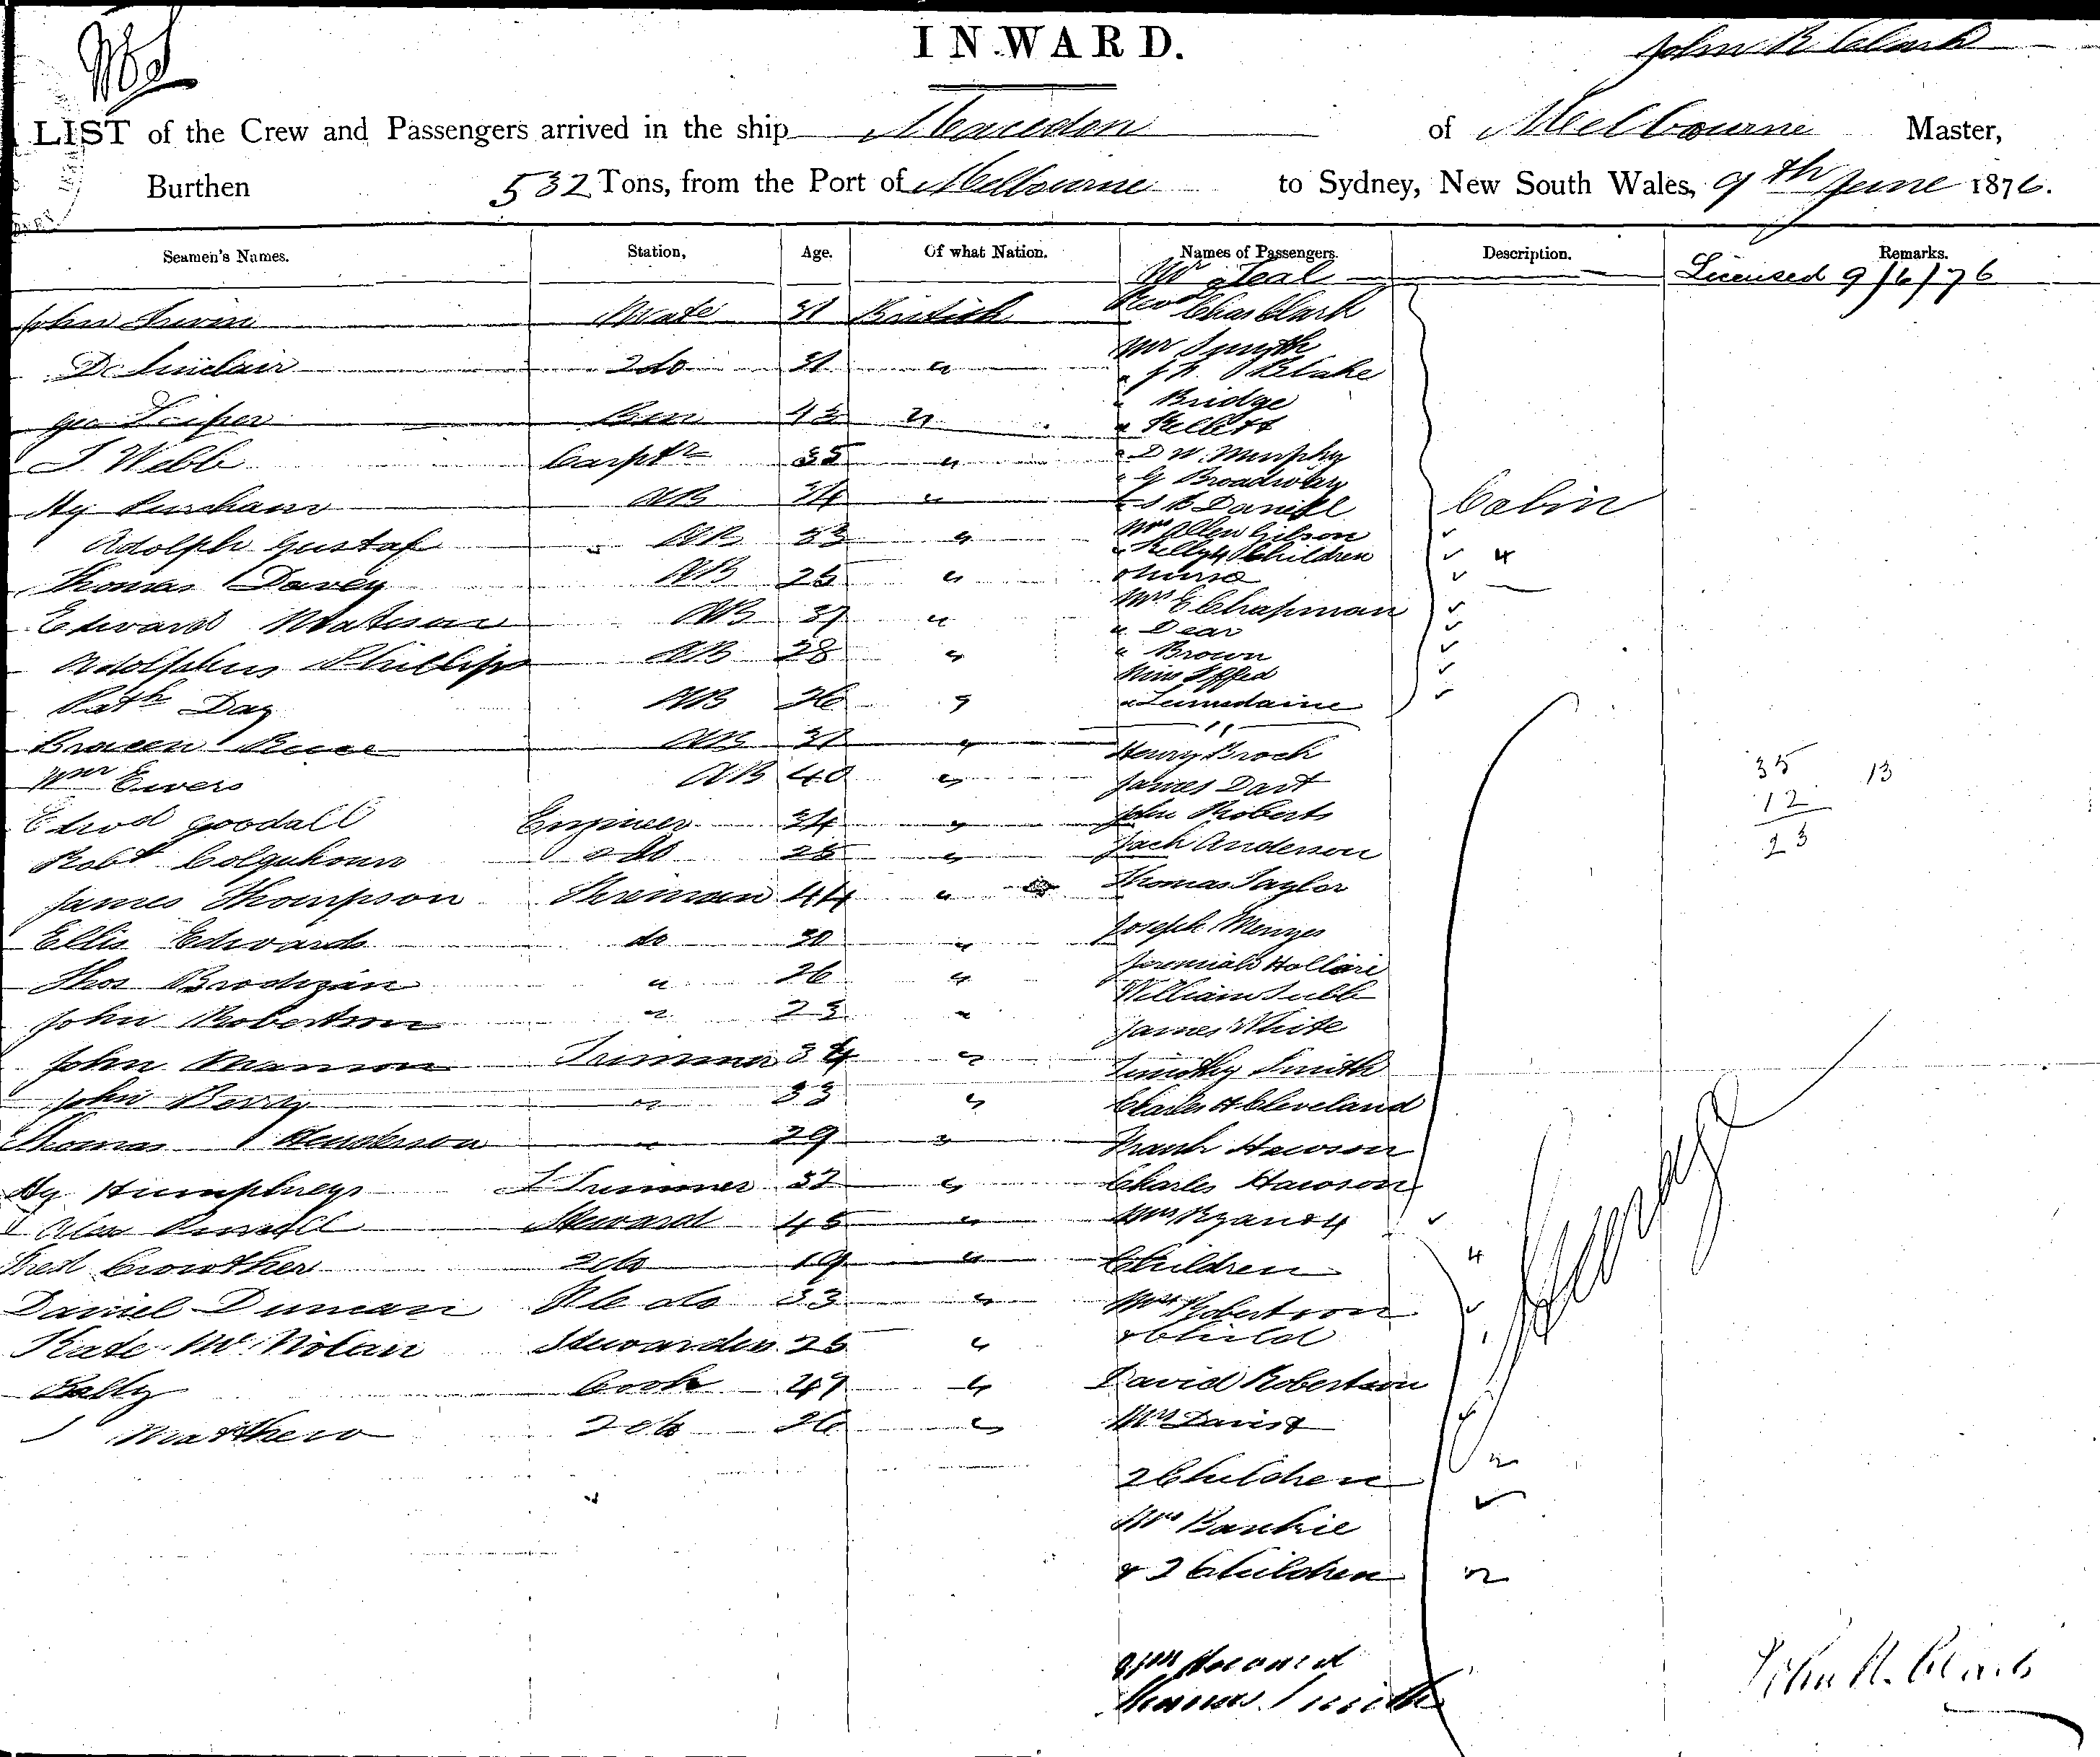 INWARD.
John R Clark
LIST of the Crew and Passengers arrived in the ship Macedon of Melbourne Master,
Burthen 532 Tons, from the Port of Melbourne to Sydney, New South Wales, 9th June 1876.
Seamen's Names. Station, Age. Of what Nation. Names of Passengers. Description. Remarks.
Mr Teal Licensed 9/6/76
John Irwin Mate 31 British Revd Chas Clark
Mr Smyth
D Sinclair 2 do 31 "
" Blake
" Bridge
Geo 43 " " Kellett
J Webb Carptr 35 " " D W. Murphy
" G Broadway
Hy AB 34 " " S B Daniell Cabin
Adolph Gustaf AB 33 " Mrs Allen Gibson
" Kelly 4 Children 4
Thomas Davey AB 25 " & nurse
Mrs E Chapman
Edward AB 37 " " Dear
Adolphus Phillips AB 28 " " Brown
Miss
Patk Day AB 26 "
AB 37 " Henry Brock
35 13
Wm Ewers AB 40 " James Dart
12
Edwd Goodall Engineer 34 " John Roberts
23
Robt Colquhoun 2 do 25 " Jack Anderson
James Thompson Fireman 44 " Thomas Taylor
Ellis Edwards do 30 " Joseph Menzes
Thos " 26 " Jeremiah
William Tubb
John Robertson " 23 " James White
John Trimmer 34 " Timothy Smith
John Berry " 33 " Charles H Cleveland
Thomas Henderson " 29 " Frank Hewson
Hy Humphreys Trimmer 32 " Charles Hewson
Alex Russell Steward 45 " Mrs Ryan & 4
Fred Crowther 2 do 19 " Children 4
Daniel Duncan do 33 " Mrs Robertson
Kate Mc Nolan Stewardess 25 " & Child 1
Cook 47 " David Robertson
Matthew 2 do 26 " Mrs Davis &
2 Children 2
Mrs Rankie
& 2 Children 2
Thomas Smith
John R. Clark